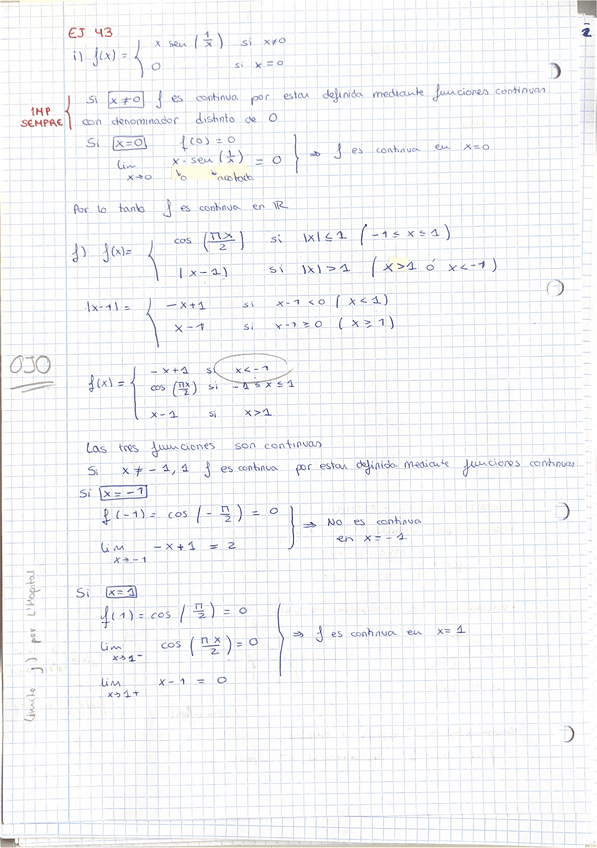 EJ 43
2
i) f(x) = { x sen (1/x) si x≠0
0 si x = 0
IMP SEMPRE
Si x≠0 f es continua por estar definida mediante funciones continuas
con denominador distinto de 0
Si x=0 f(0) = 0
lim x→0 x · sen (1/x) = 0 ⇒ f es continua en x=0
0 acotada
Por lo tanto f es continua en ℝ
f) f(x) = { cos (πx/2) si |x| ≤ 1 (-1 ≤ x ≤ 1)
|x-1| si |x| > 1 (x>1 ó x<-1)
|x-1| = { -x+1 si x-1 < 0 (x<1)
x-1 si x-1 ≥ 0 (x ≥ 1)
OJO
f(x) = { -x+1 si x<-1
cos (πx/2) si -1 ≤ x ≤ 1
x-1 si x>1
Las tres funciones son continuas
Si x ≠ -1, 1 f es continua por estar definida mediante funciones continuas
Si x=-1
f(-1) = cos (-π/2) = 0
⇒ No es continua
en x = -1
lim x→-1 -x+1 = 2
Si x=1
f(1) = cos (π/2) = 0
lim x→1- cos (πx/2) = 0 ⇒ f es continua en x=1
lim x→1+ x-1 = 0
Límite j) por L'Hopital